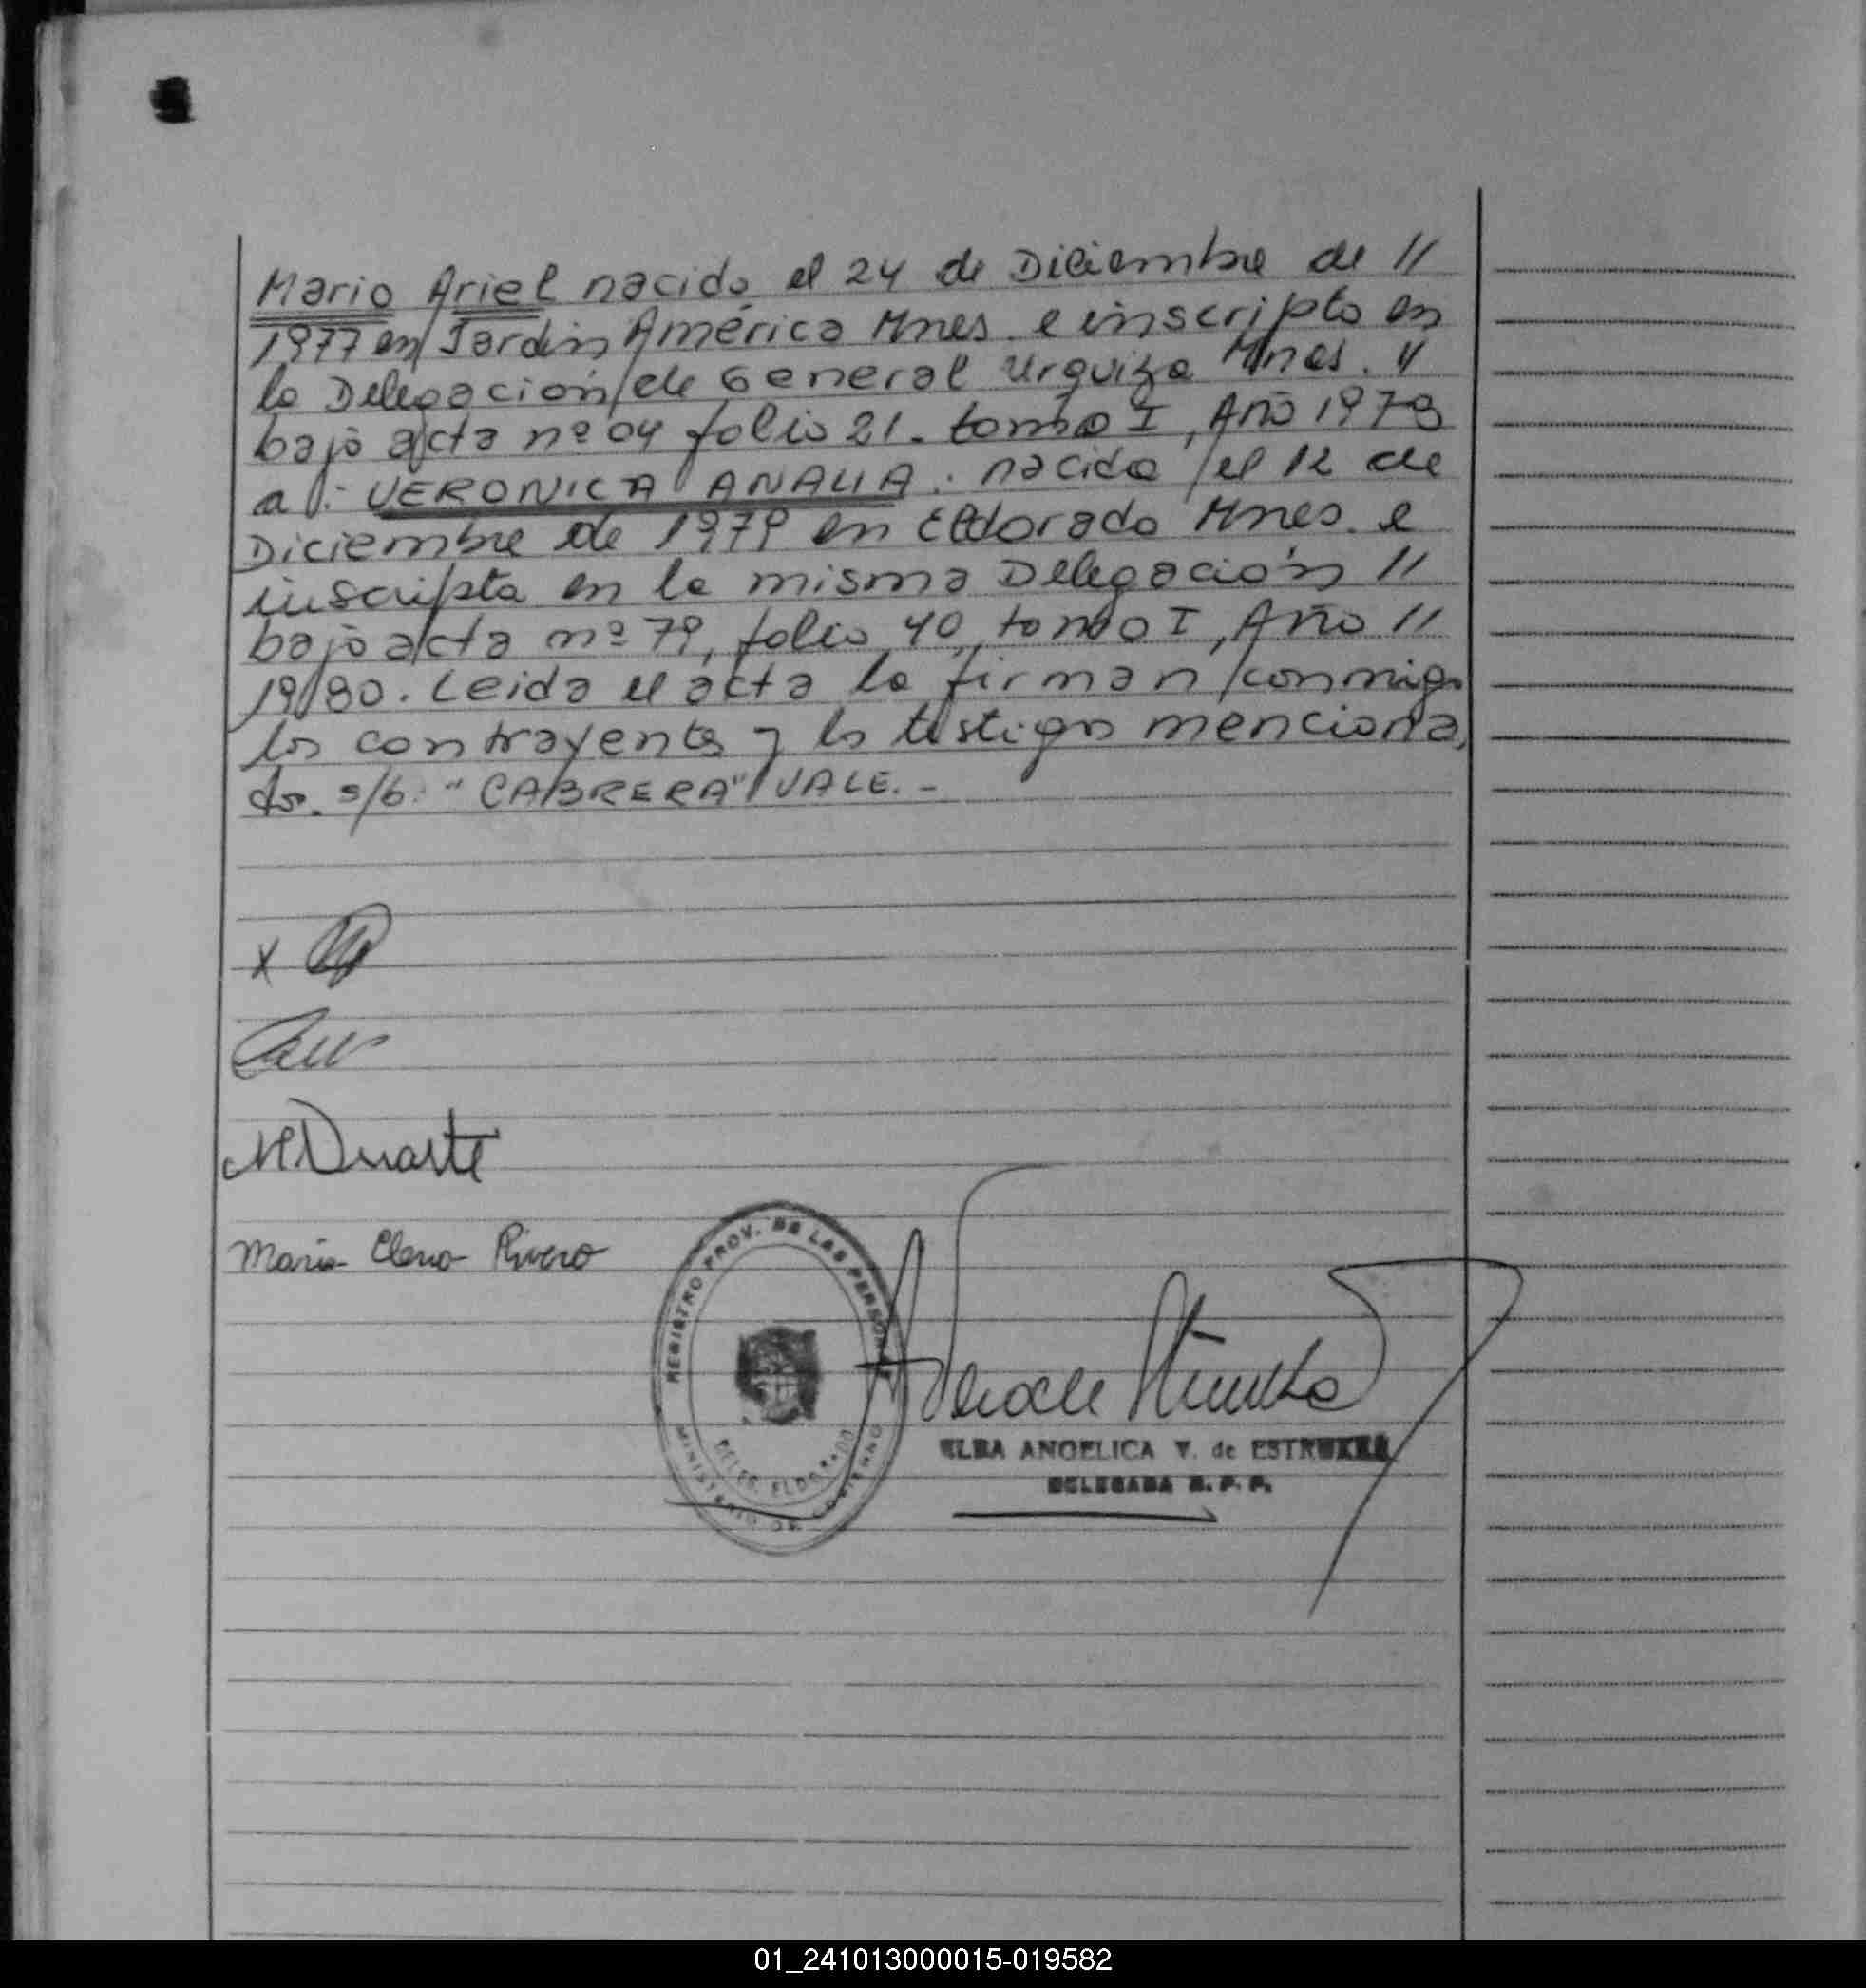 Mario Ariel nacido el 24 de Diciembre de //
1977 en Jardin América Mnes. e inscripto en
la Delegación de General Urquiza Mnes. //
bajo acta nº 04 folio 21. tomo I, Año 1978
a: VERONICA ANALIA. nacida el 12 de
Diciembre de 1979 en Eldorado Mnes. e
inscripta en la misma Delegación //
bajo acta nº 79, folio 40, tomo I, Año //
1980. Leida el acta la firman conmigo
los contrayentes y los testigos menciona
dos. s/b: "CABRERA" VALE. -
x
M Duarte
Maria Elena Rivero
REGISTRO PROV. DE LAS PERSONAS
DELEG. ELDORADO
MINISTERIO DE GOBIERNO
ELBA ANGELICA V. de
DELEGADA R. P. P.
01_241013000015-019582